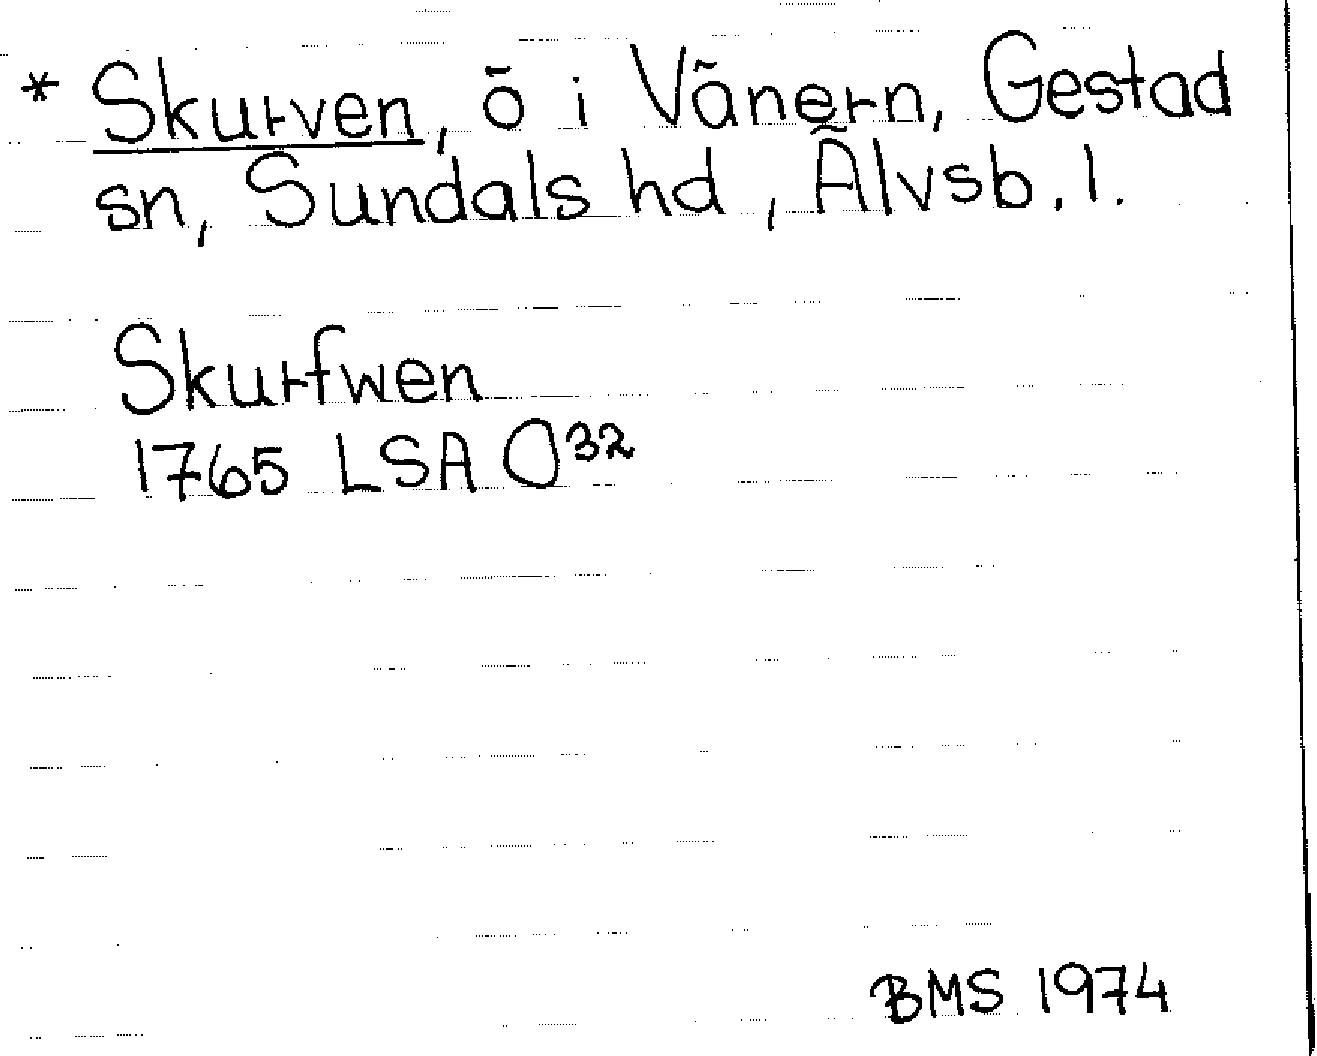 * Skurven, ö i Vänern, Gestad
sn, Sundals hd, Älvsb. l.
Skurfwen
1765 LSA O32
BMS 1974